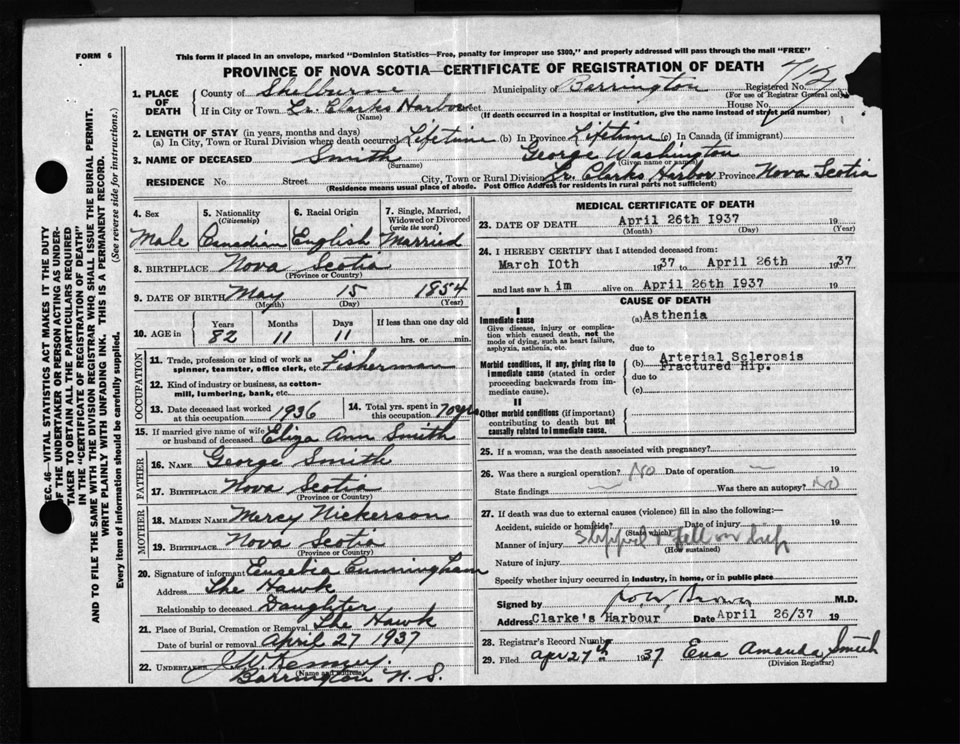 This form if placed in an envelope, marked "Dominion Statistics—Free, penalty for improper use $300," and properly addressed will pass through the mail "FREE"
FORM 6
PROVINCE OF NOVA SCOTIA—CERTIFICATE OF REGISTRATION OF DEATH
1. PLACE OF DEATH
County of Shelburne Municipality of Barrington Registered No.
(For use of Registrar General only)
If in City or Town Lr. Clarks Harbor Street House No.
(Name) (If death occurred in a hospital or institution, give the name instead of street and number)
2. LENGTH OF STAY (in years, months and days)
(a) In City, Town or Rural Division where death occurred Lifetime (b) In Province Lifetime (c) In Canada (if immigrant)
3. NAME OF DECEASED Smith George Washington
(Surname) (Given name or names)
RESIDENCE No. Street City, Town or Rural Division Lr. Clarks Harbor Province Nova Scotia
(Residence means usual place of abode. Post Office Address for residents in rural parts not sufficient)
SEC. 46—VITAL STATISTICS ACT MAKES IT THE DUTY
OF THE UNDERTAKER OR PERSON ACTING AS UNDER-
TAKER TO OBTAIN ALL THE PARTICULARS REQUIRED
IN THE "CERTIFICATE OF REGISTRATION OF DEATH"
AND TO FILE THE SAME WITH THE DIVISION REGISTRAR WHO SHALL ISSUE THE BURIAL PERMIT.
WRITE PLAINLY WITH UNFADING INK. THIS IS A PERMANENT RECORD.
Every item of information should be carefully supplied. (See reverse side for instructions.)
4. Sex
Male
5. Nationality
(Citizenship)
Canadian
6. Racial Origin
English
7. Single, Married,
Widowed or Divorced
(write the word)
Married
8. BIRTHPLACE Nova Scotia
(Province or Country)
9. DATE OF BIRTH May 15 1854
(Month) (Day) (Year)
10. AGE in Years Months Days If less than one day old
82 11 11 hrs. or min.
OCCUPATION
11. Trade, profession or kind of work as
spinner, teamster, office clerk, etc. Fisherman
12. Kind of industry or business, as cotton-
mill, lumbering, bank, etc.
13. Date deceased last worked
at this occupation 1936
14. Total yrs. spent in
this occupation. 70 yrs
15. If married give name of wife
or husband of deceased Eliza Ann Smith
FATHER
16. NAME George Smith
17. BIRTHPLACE Nova Scotia
(Province or Country)
MOTHER
18. MAIDEN NAME Mercy Nickerson
19. BIRTHPLACE Nova Scotia
(Province or Country)
20. Signature of informant Eusebia Cunningham
Address The Hawk
Relationship to deceased Daughter
21. Place of Burial, Cremation or Removal The Hawk
Date of burial or removal April 27 1937
22. UNDERTAKER
(Name and address)
Barrington N. S.
MEDICAL CERTIFICATE OF DEATH
23. DATE OF DEATH April 26th 1937 19
(Month) (Day) (Year)
24. I HEREBY CERTIFY that I attended deceased from:
March 10th 1937 to April 26th 1937
and last saw h im alive on April 26th 1937 19
CAUSE OF DEATH
I
Immediate cause
Give disease, injury or complica-
tion which caused death, not the
mode of dying, such as heart failure,
asphyxia, asthenia, etc.
(a) Asthenia
due to
Morbid conditions, if any, giving rise to
immediate cause (stated in order
proceeding backwards from im-
mediate cause).
(b) Arterial Sclerosis
Fractured Hip.
due to
(c)
II
Other morbid conditions (if important)
contributing to death but not
causally related to immediate cause.
25. If a woman, was the death associated with pregnancy?
26. Was there a surgical operation? No Date of operation 19
State findings Was there an autopsy? No
27. If death was due to external causes (violence) fill in also the following:—
Accident, suicide or homicide? Date of injury 19
(State which)
Manner of injury slipped & fell on hip
(How sustained)
Nature of injury
Specify whether injury occurred in industry, in home, or in public place
Signed by M.D.
Address Clarke's Harbour Date April 26/37 19
28. Registrar's Record Number
29. Filed Apr 27th 1937 Eva Amanda Smith
(Division Registrar)